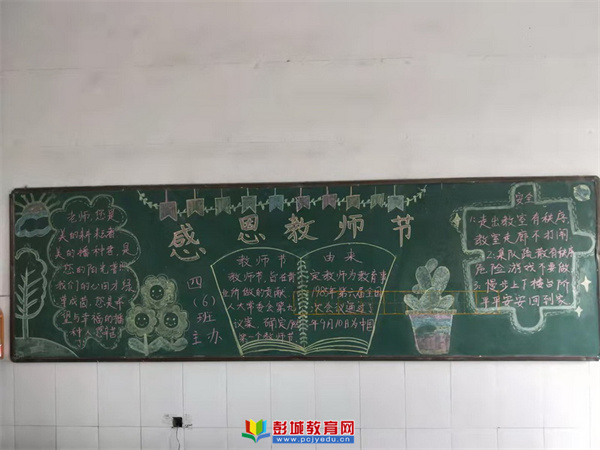 感恩教师节
老师,您是
美的耕耘者
美的播种者,是
您的阳光普
我们的心田才绿
草成茵,您是希
望与幸福的播
种人
四
(6)
班
主
办
教师节
由来
教师节,旨在肯定教师为教育事
业所做的贡献,1985年第六届全国
人大常委会第九次会议通过了
议案,确定1985年9月10日为中国
第一个教师节
安全
1.走出教室有秩序
教室走廊不打闹
2.集队疏散有秩序
危险游戏不要做
3.慢步上下楼台阶
平平安安回到家
彭城教育网
www.pcjyedu.cn